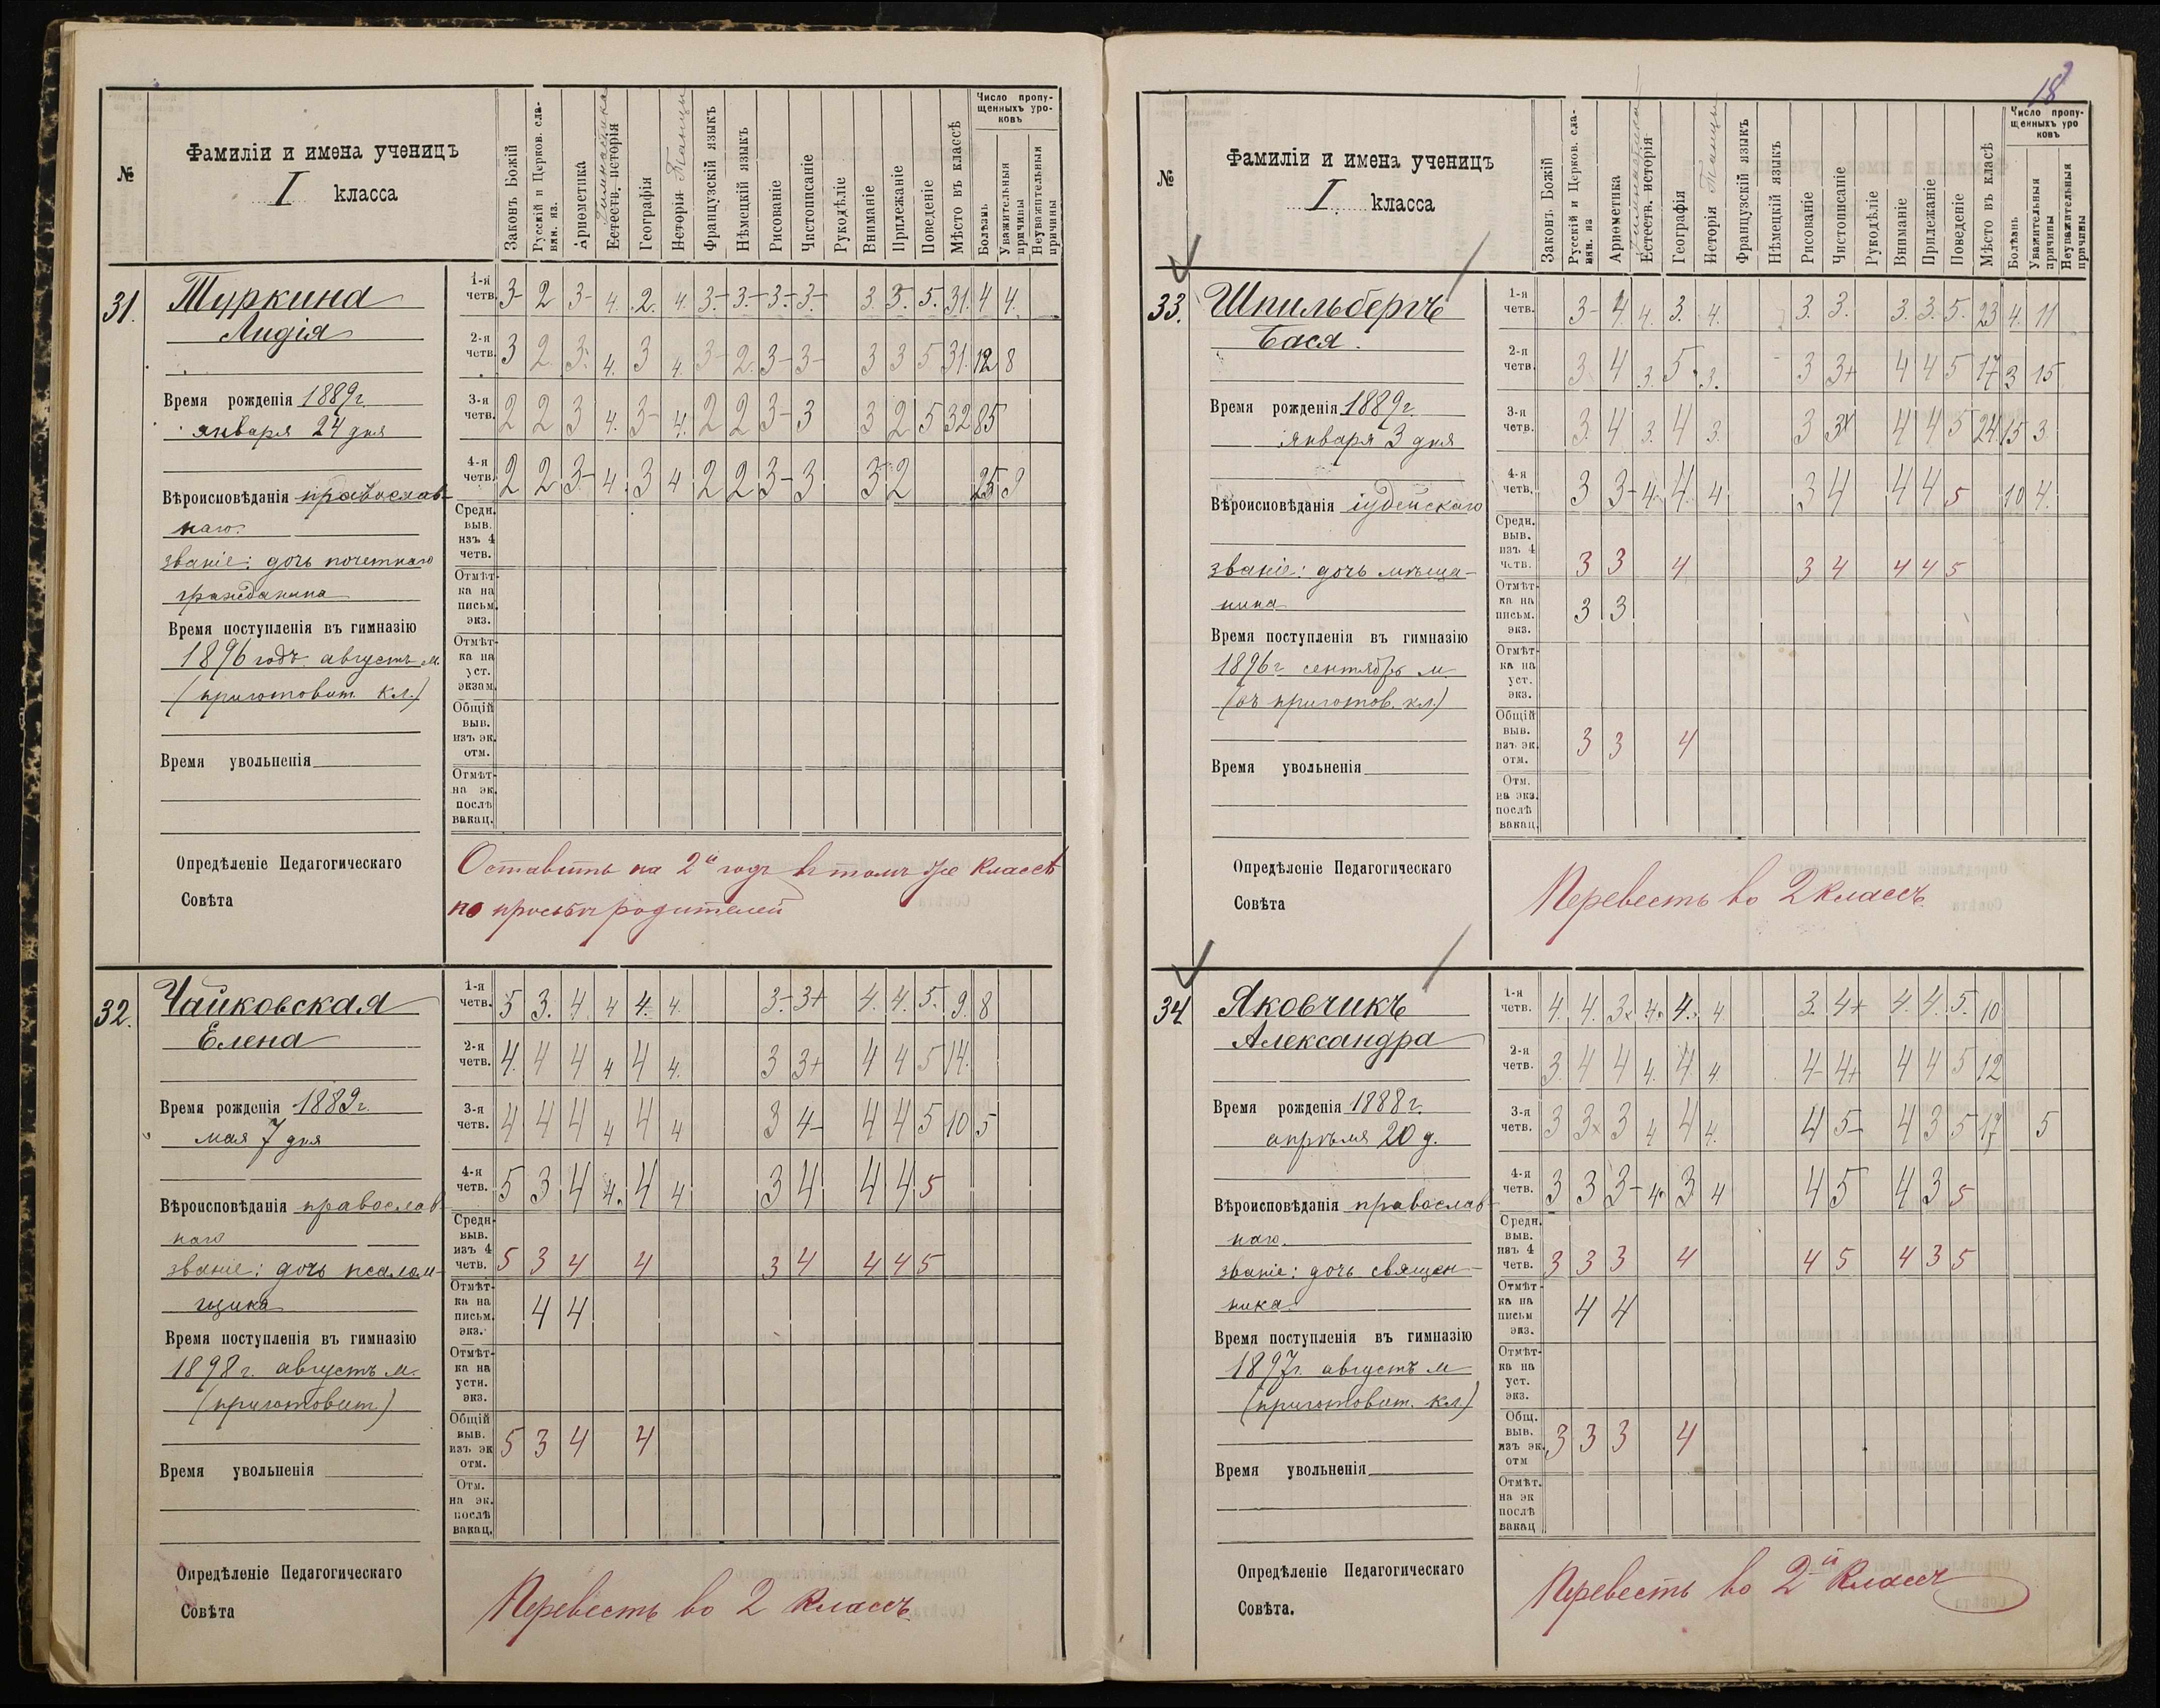 №
Фамиліи и имена ученицъ
I класса
Законъ Божій
Русскій и Церков. сла-
вян. яз.
Ариѳметика
Гимнастика
Естеств. исторія
Географія
Исторія Танцы
Французскій языкъ
Нѣмецкій языкъ
Рисованіе
Чистописаніе
Рукодѣліе
Вниманіе
Прилежаніе
Поведеніе
Мѣсто въ классѣ
Число пропу-
щенныхъ уро-
ковъ
Болѣзнь
Уважительныя
причины
Неуважительныя
причины
31. Туркина
Лидія
Время рожденія 1889г.
января 24 дня
Вѣроисповѣданія православ-
наго.
званіе: дочь почетнаго
гражданина
Время поступленія въ гимназію
1896 годъ августъ м.
(приготовит. кл.)
Время увольненія
1-я четв. 3- 2 3- 4. 2. 4. 3- 3- 3- 3- 3. 3. 5. 31. 4 4.
2-я четв. 3 2 3. 4. 3 4. 3- 2. 3- 3- 3 3 5 31. 12 8
3-я четв. 2 2 3 4. 3- 4. 2 2 3- 3 3 2 5 32 85
4-я четв. 2 2 3- 4. 3 4 2 2 3- 3 3 2 25 9
Средн. выв. изъ 4 четв.
Отмѣт-ка на письм. экз.
Отмѣт-ка на уст. экзам.
Общій выв. изъ эк. отм.
Отмѣт-на эк. послѣ вакац.
Опредѣленіе Педагогическаго
Совѣта
Оставить на 2й годъ въ томъ же классѣ
по просьбѣ родителей
32. Чайковская
Елена
Время рожденія 1889г.
мая 7 дня
Вѣроисповѣданія православ
наго
званіе: дочь псалом-
щика
Время поступленія въ гимназію
1898г. августъ м.
(приготовит)
Время увольненія
1-я четв. 5 3. 4. 4 4. 4. 3- 3+ 4. 4. 5. 9. 8
2-я четв. 4. 4 4 4 4 4. 3 3+ 4 4 5 14.
3-я четв. 4 4 4 4 4 4 3 4- 4 4 5 10 5
4-я четв. 5 3 4 4. 4 4 3 4 4 4 5
Средн. выв. изъ 4 четв. 5 3 4 4 3 4 4 4 5
Отмѣт-ка на письм. экз. 4 4
Отмѣт-ка на устн. экз.
Общій выв. изъ эк отм. 5 3 4 4
Отм. на эк. послѣ вакац.
Опредѣленіе Педагогическаго
Совѣта
Перевесть во 2 классъ
18
№
Фамиліи и имена ученицъ
I. класса
Законъ Божій
Русскій и Церков. сла-
вян. яз
Ариѳметика
Гимнастика
Естеств. исторія
Географія
Исторія Танцы
Французскій языкъ
Нѣмецкій языкъ
Рисованіе
Чистописаніе
Рукодѣліе
Вниманіе
Прилежаніе
Поведеніе
Мѣсто въ класѣ
Число пропу-
щенныхъ уро
ковъ
Болѣзнь
Уважительныя
причины
Неуважительныя
причины
33. Шпильбергъ
Бася.
Время рожденія 1889г.
января 3 дня
Вѣроисповѣданія іудейскаго
званіе: дочь мѣща-
нина
Время поступленія въ гимназію
1896г сентябрь м.
(въ приготов. кл.)
Время увольненія
1-я четв. 3- 4. 4. 3. 4. 3. 3. 3. 3. 5. 23 4. 11
2-я четв. 3 4 3. 5. 3. 3 3+ 4 4 5 17 3 15
3-я четв. 3. 4 3. 4 3. 3 3+ 4 4 5 24 15 3.
4-я четв. 3 3- 4. 4 4 3 4 4 4 5 10 4.
Средн. выв. изъ 4 четв. 3 3 4 3 4 4 4 5
Отмѣт-ка на письм. экз. 3 3
Отмѣт-ка на уст. экз.
Общій выв. изъ эк. отм. 3 3 4
Отм. на экз. послѣ вакац.
Опредѣленіе Педагогическаго
Совѣта
Перевесть во 2 классъ
34. Яковчикъ
Александра
Время рожденія 1888г.
апрѣля 20 д.
Вѣроисповѣданія православ-
наго.
званіе: дочь священ-
ника.
Время поступленія въ гимназію
1897г. августъ м
(приготовит. кл)
Время увольненія
1-я четв. 4. 4. 3. 4. 4. 4 3. 4+ 4. 4. 5. 10
2-я четв. 3. 4 4 4. 4 4. 4- 4+ 4 4 5 12
3-я четв. 3 3 3 4 4 4. 4 5- 4 3 5 17 5
4-я четв. 3 3 3- 4. 3 4 4 5 4 3 5
Средн. выв. изъ 4 четв. 3 3 3 4 4 5 4 3 5
Отмѣт-ка на письм экз. 4 4
Отмѣт-ка на уст. экз.
Общ. выв. изъ эк. отм 3 3 3 4
Отмѣт. на эк послѣ вакац
Опредѣленіе Педагогическаго
Совѣта.
Перевесть во 2й классъ